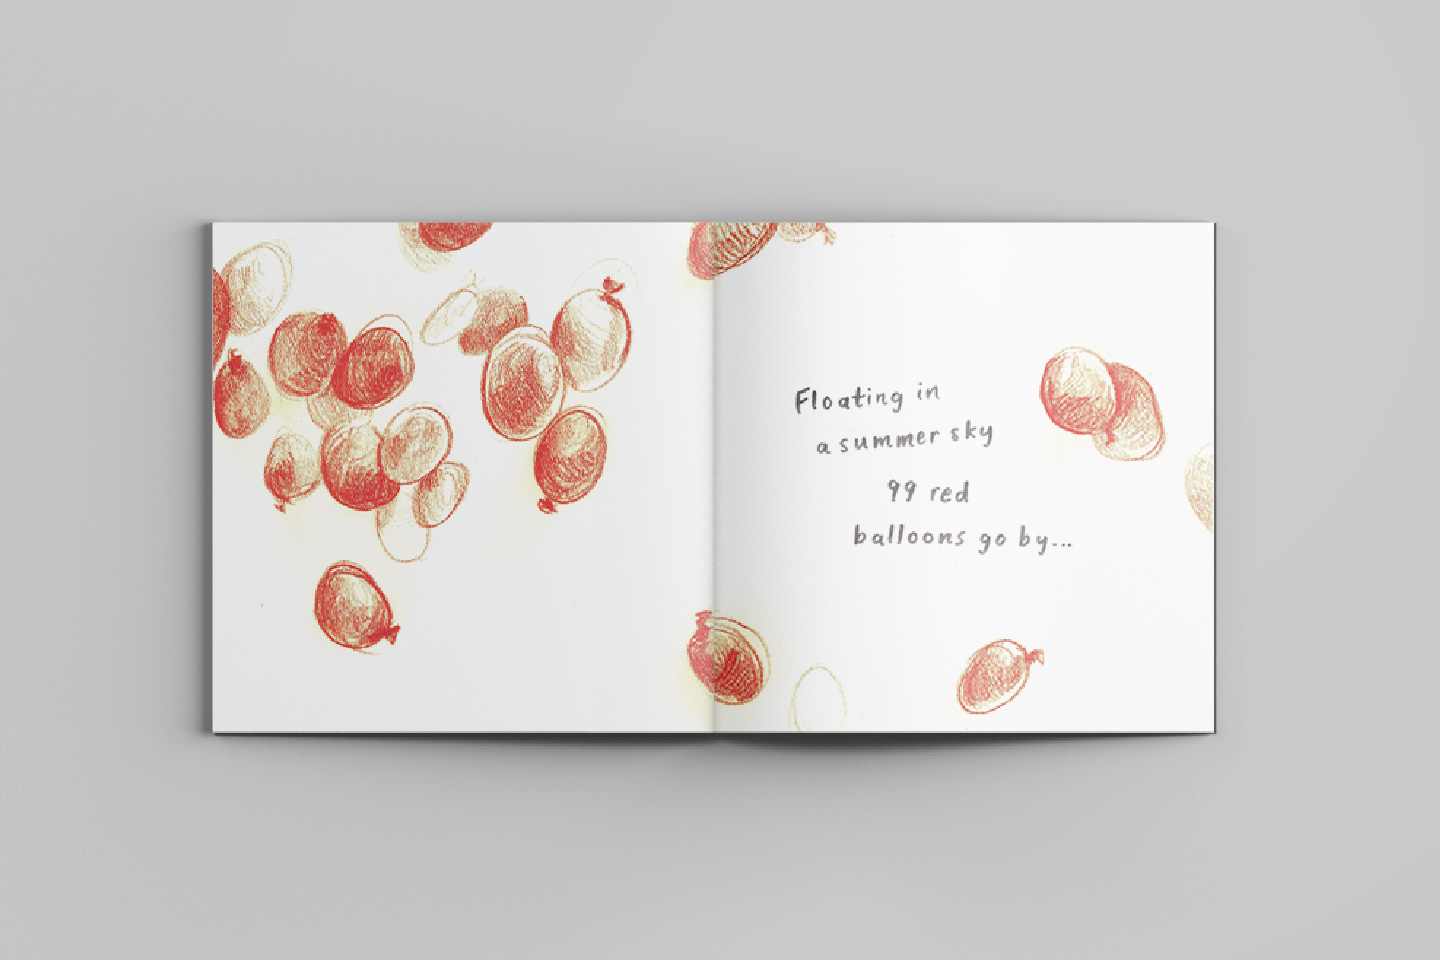 Floating in
a summer sky
99 red
balloons go by...